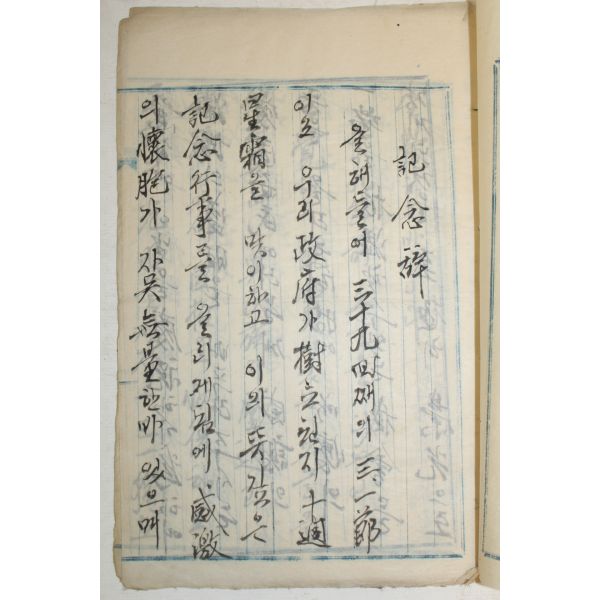 記念辭
올해들어 三十九回째의 三.一節
이오 우리 政府가 樹立된지 十週
星霜을 맞이하고 이의 뜻깊은
記念行事를 올리게됨에 感激
의 懷胞가 자못 無量한바 있으며